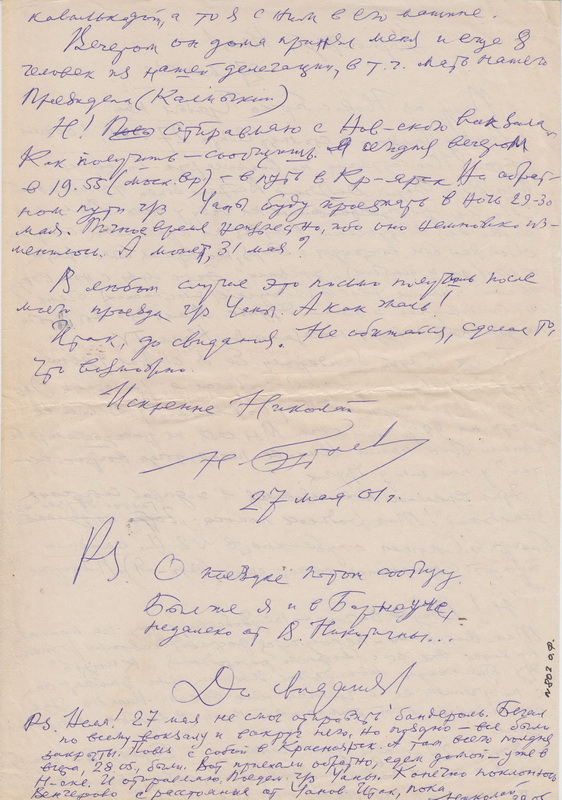 кавалькадой, а то я с ним в его машине.
Вечером он дома принял меня и еще 8
человек из нашей делегации, в т.ч. мать нашего
Президента (Калмыкии)
Н! Отправляю с Нов-ского вокзала.
Как получишь – сообщишь. Я сегодня вечером
в 19.55 (моск. вр) – в путь в Кр-ярск. На обрат-
ном пути ч/з Чаны буду проезжать в ночь 29-30
мая. Точное время неизвестно, ибо оно немножко из-
менилось. А может, 31 мая?
В любом случае это письмо получишь после
моего проезда ч/з Чаны. А как жаль!
Итак, до свидания. Не обижайся, сделал то,
что возможно.
Искренне Николай
27 мая 01 г.
PS О поездке потом сообщу.
Был же я и в Барнауле,
недалеко от В. Никитичны...
До свидания!
PS Неля! 27 мая не смог отправить бандероль. Бегал
по всему вокзалу и вокруг него, но поздно – все были
закрыты. Повез с собой в Красноярск. А там всего полдня
вчера, 28.05, были. Вот приехали обратно, едем домой – уже в
Н-ске. И отправляю. Поедем ч/з Чаны. Конечно поклонюсь
Венгерово с расстояния от Чанов. Итак, пока.
Николай
№ 802 о.ф.